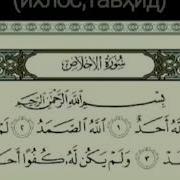 (ихлос,тавҳид)
سُورَةُ الْإِخْلَاصِ
بِسْمِ اللَّهِ الرَّحْمَٰنِ الرَّحِيمِ
أَحَدٌ ١ اللَّهُ الصَّمَدُ ٢ لَمْ
٣ وَلَمْ يَكُن لَّهُ كُفُوًا